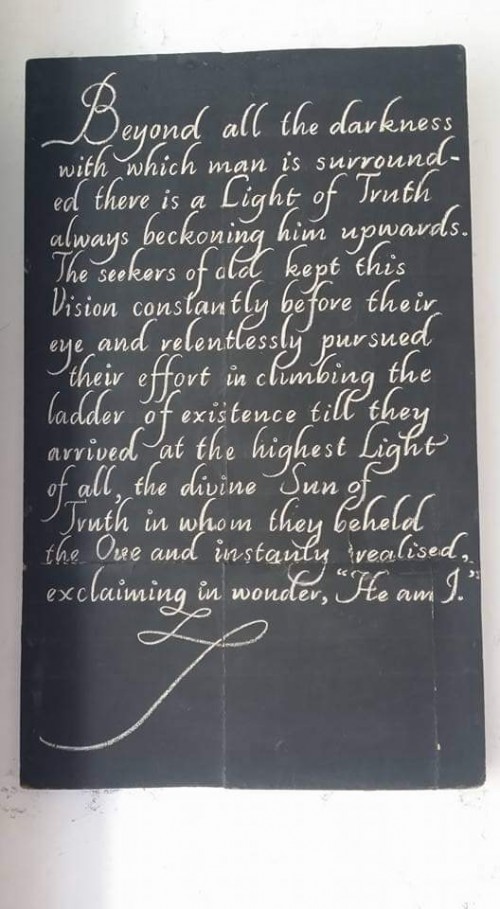 Beyond all the darkness
with which man is surround-
ed there is a Light of Truth
always beckoning him upwards.
The seekers of old kept this
Vision constantly before their
eye and relentlessly pursued
their effort in climbing the
ladder of existence till they
arrived at the highest Light
of all, the divine Sun of
Truth in whom they beheld
the One and instantly realised,
exclaiming in wonder, "He am I."